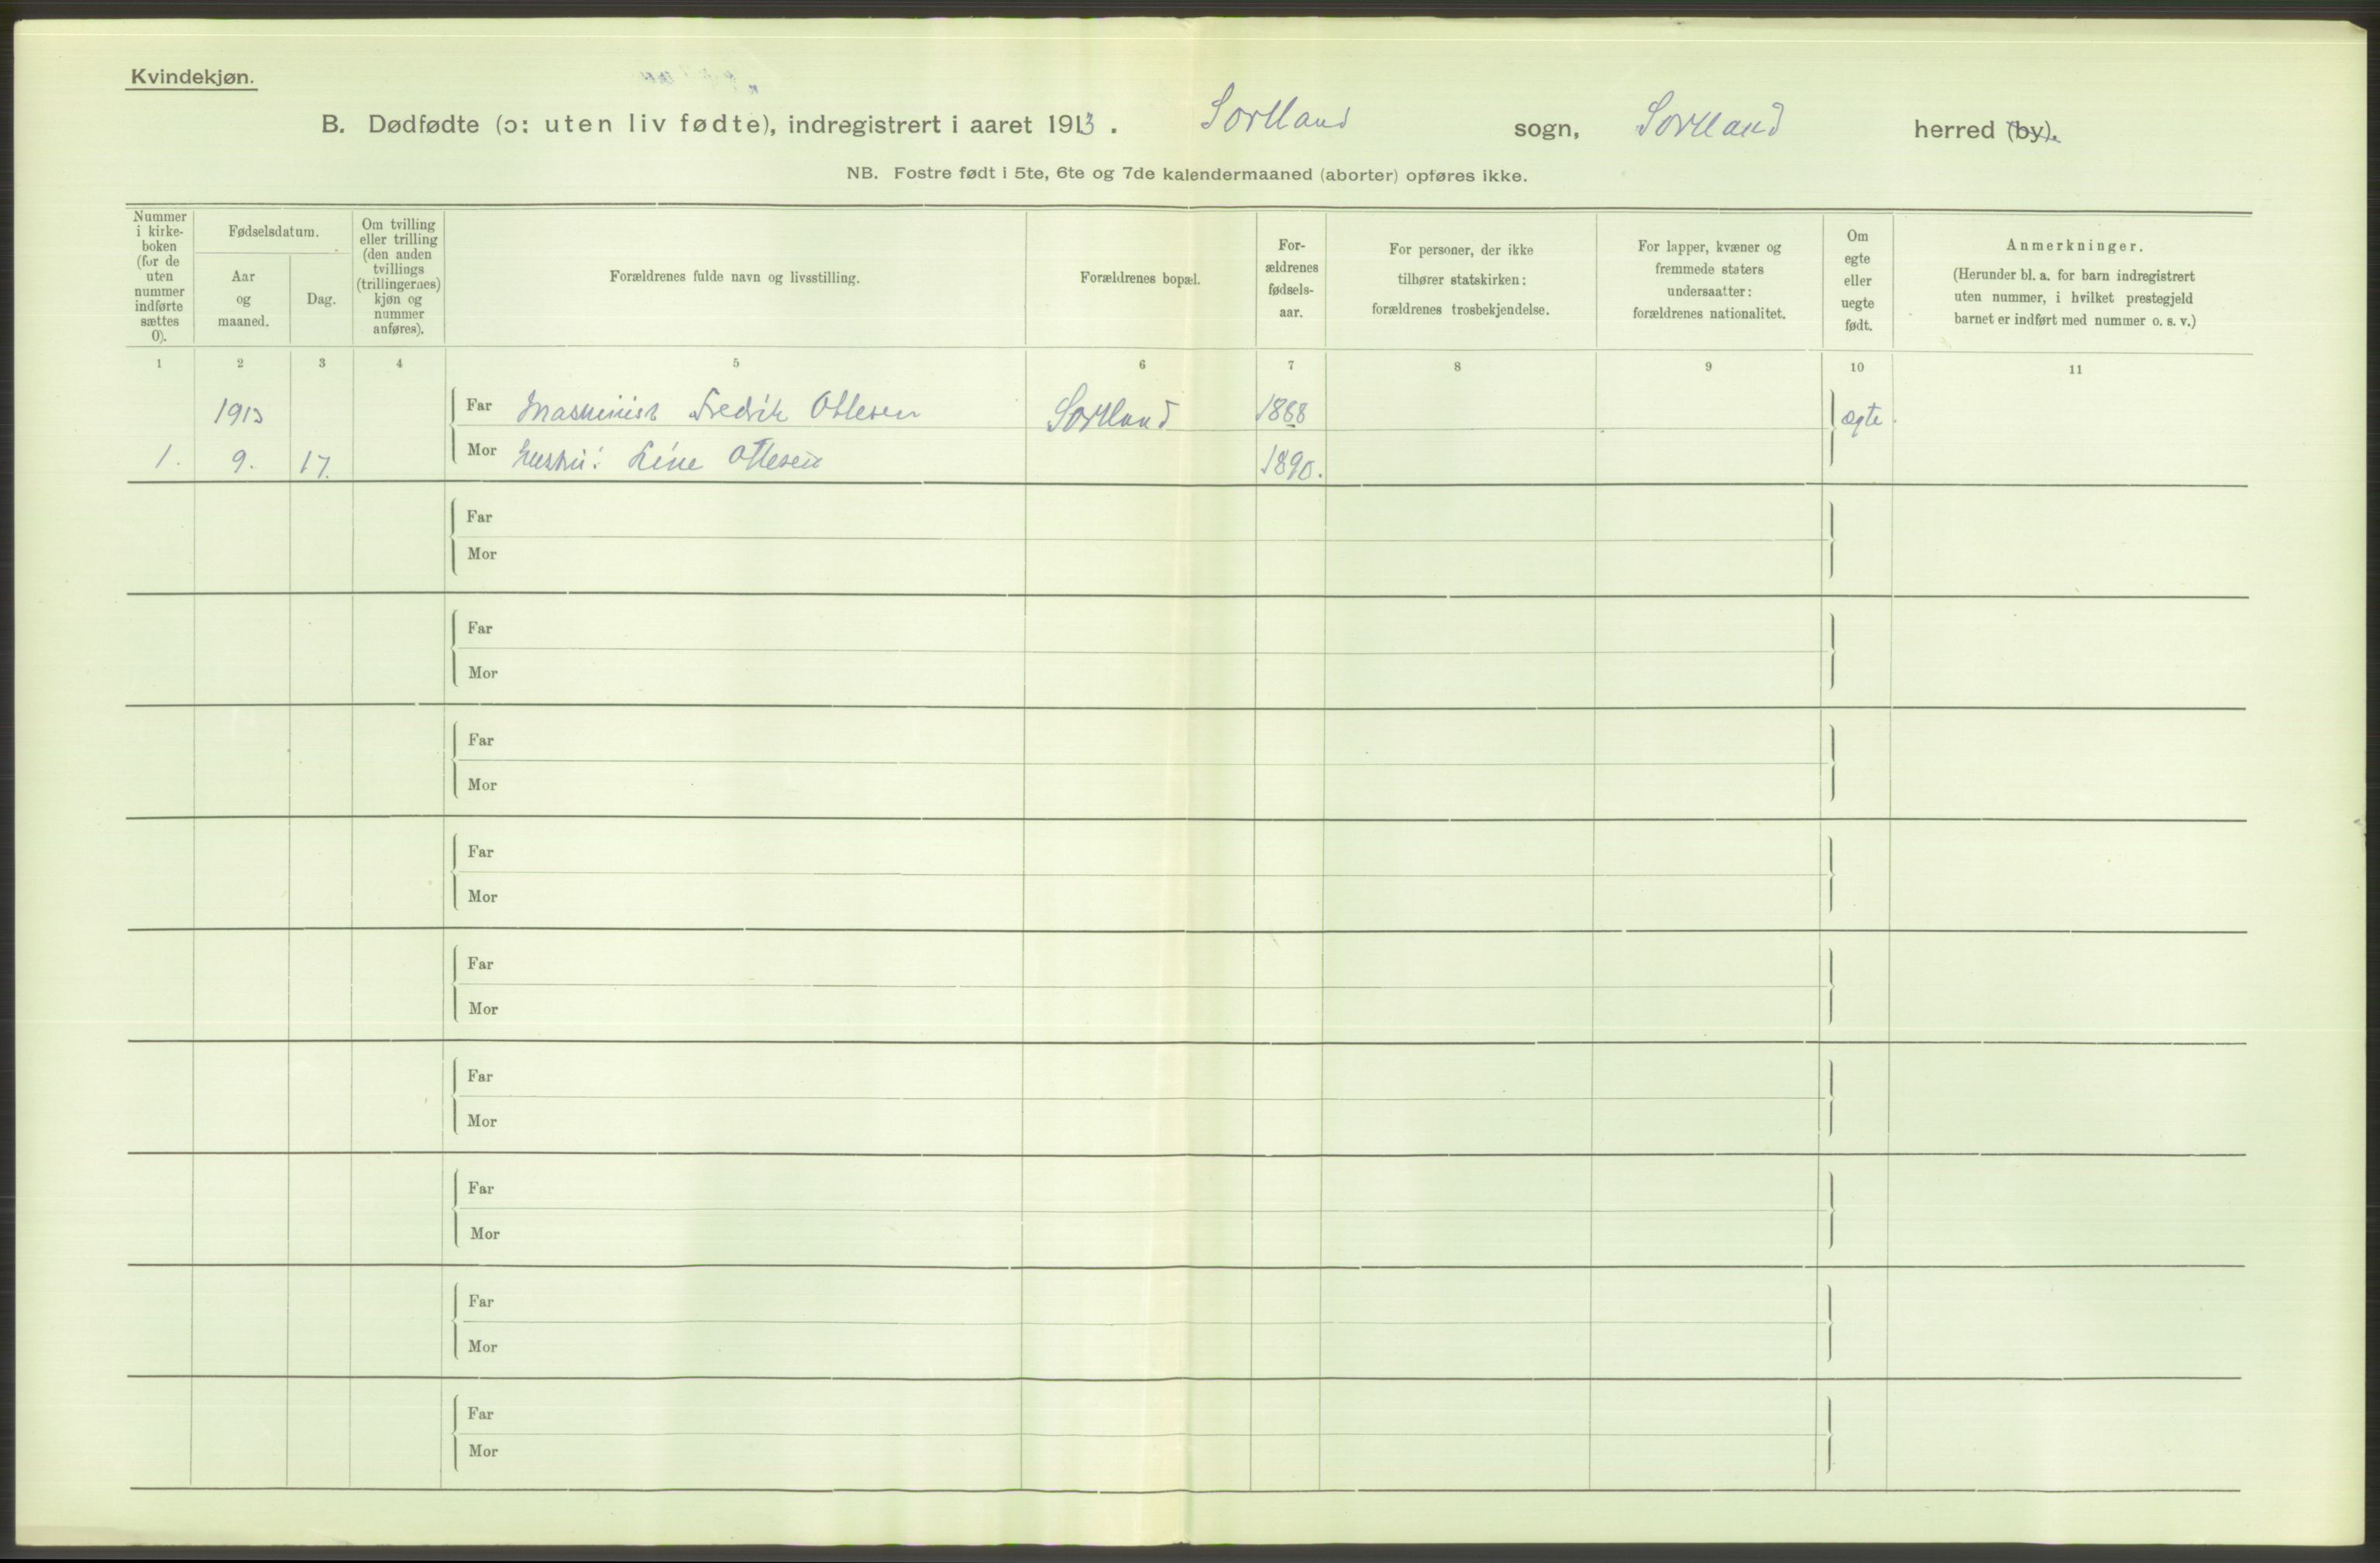 Kvindekjøn.
B. Dødfødte (ɔ: uten liv fødte), indregistrert i aaret 1913. Sortland sogn, Sortland herred (by).
NB. Fostre født i 5te, 6te og 7de kalendermaaned (aborter) opføres ikke.
Nummer
i kirke-
boken
(for de
uten
nummer
indførte
sættes
0).
Fødselsdatum.
Aar
og
maaned.
Dag.
Om tvilling
eller trilling
(den anden
tvillings
(trillingernes)
kjøn og
nummer
anføres).
Forældrenes fulde navn og livsstilling.
Forældrenes bopæl.
For-
ældrenes
fødsels-
aar.
For personer, der ikke
tilhører statskirken:
forældrenes trosbekjendelse.
For lapper, kvæner og
fremmede staters
undersaatter:
forældrenes nationalitet.
Om
egte
eller
uegte
født.
Anmerkninger.
(Herunder bl. a. for barn indregistrert
uten nummer, i hvilket prestegjeld
barnet er indført med nummer o. s. v.)
1 2 3 4 5 6 7 8 9 10 11
1913 Far Maskinist Fredrik Ottesen Sortland 1888 ægte.
1. 9. 17. Mor hustru: Line Ottesen 1890.
Far
Mor
Far
Mor
Far
Mor
Far
Mor
Far
Mor
Far
Mor
Far
Mor
Far
Mor
Far
Mor